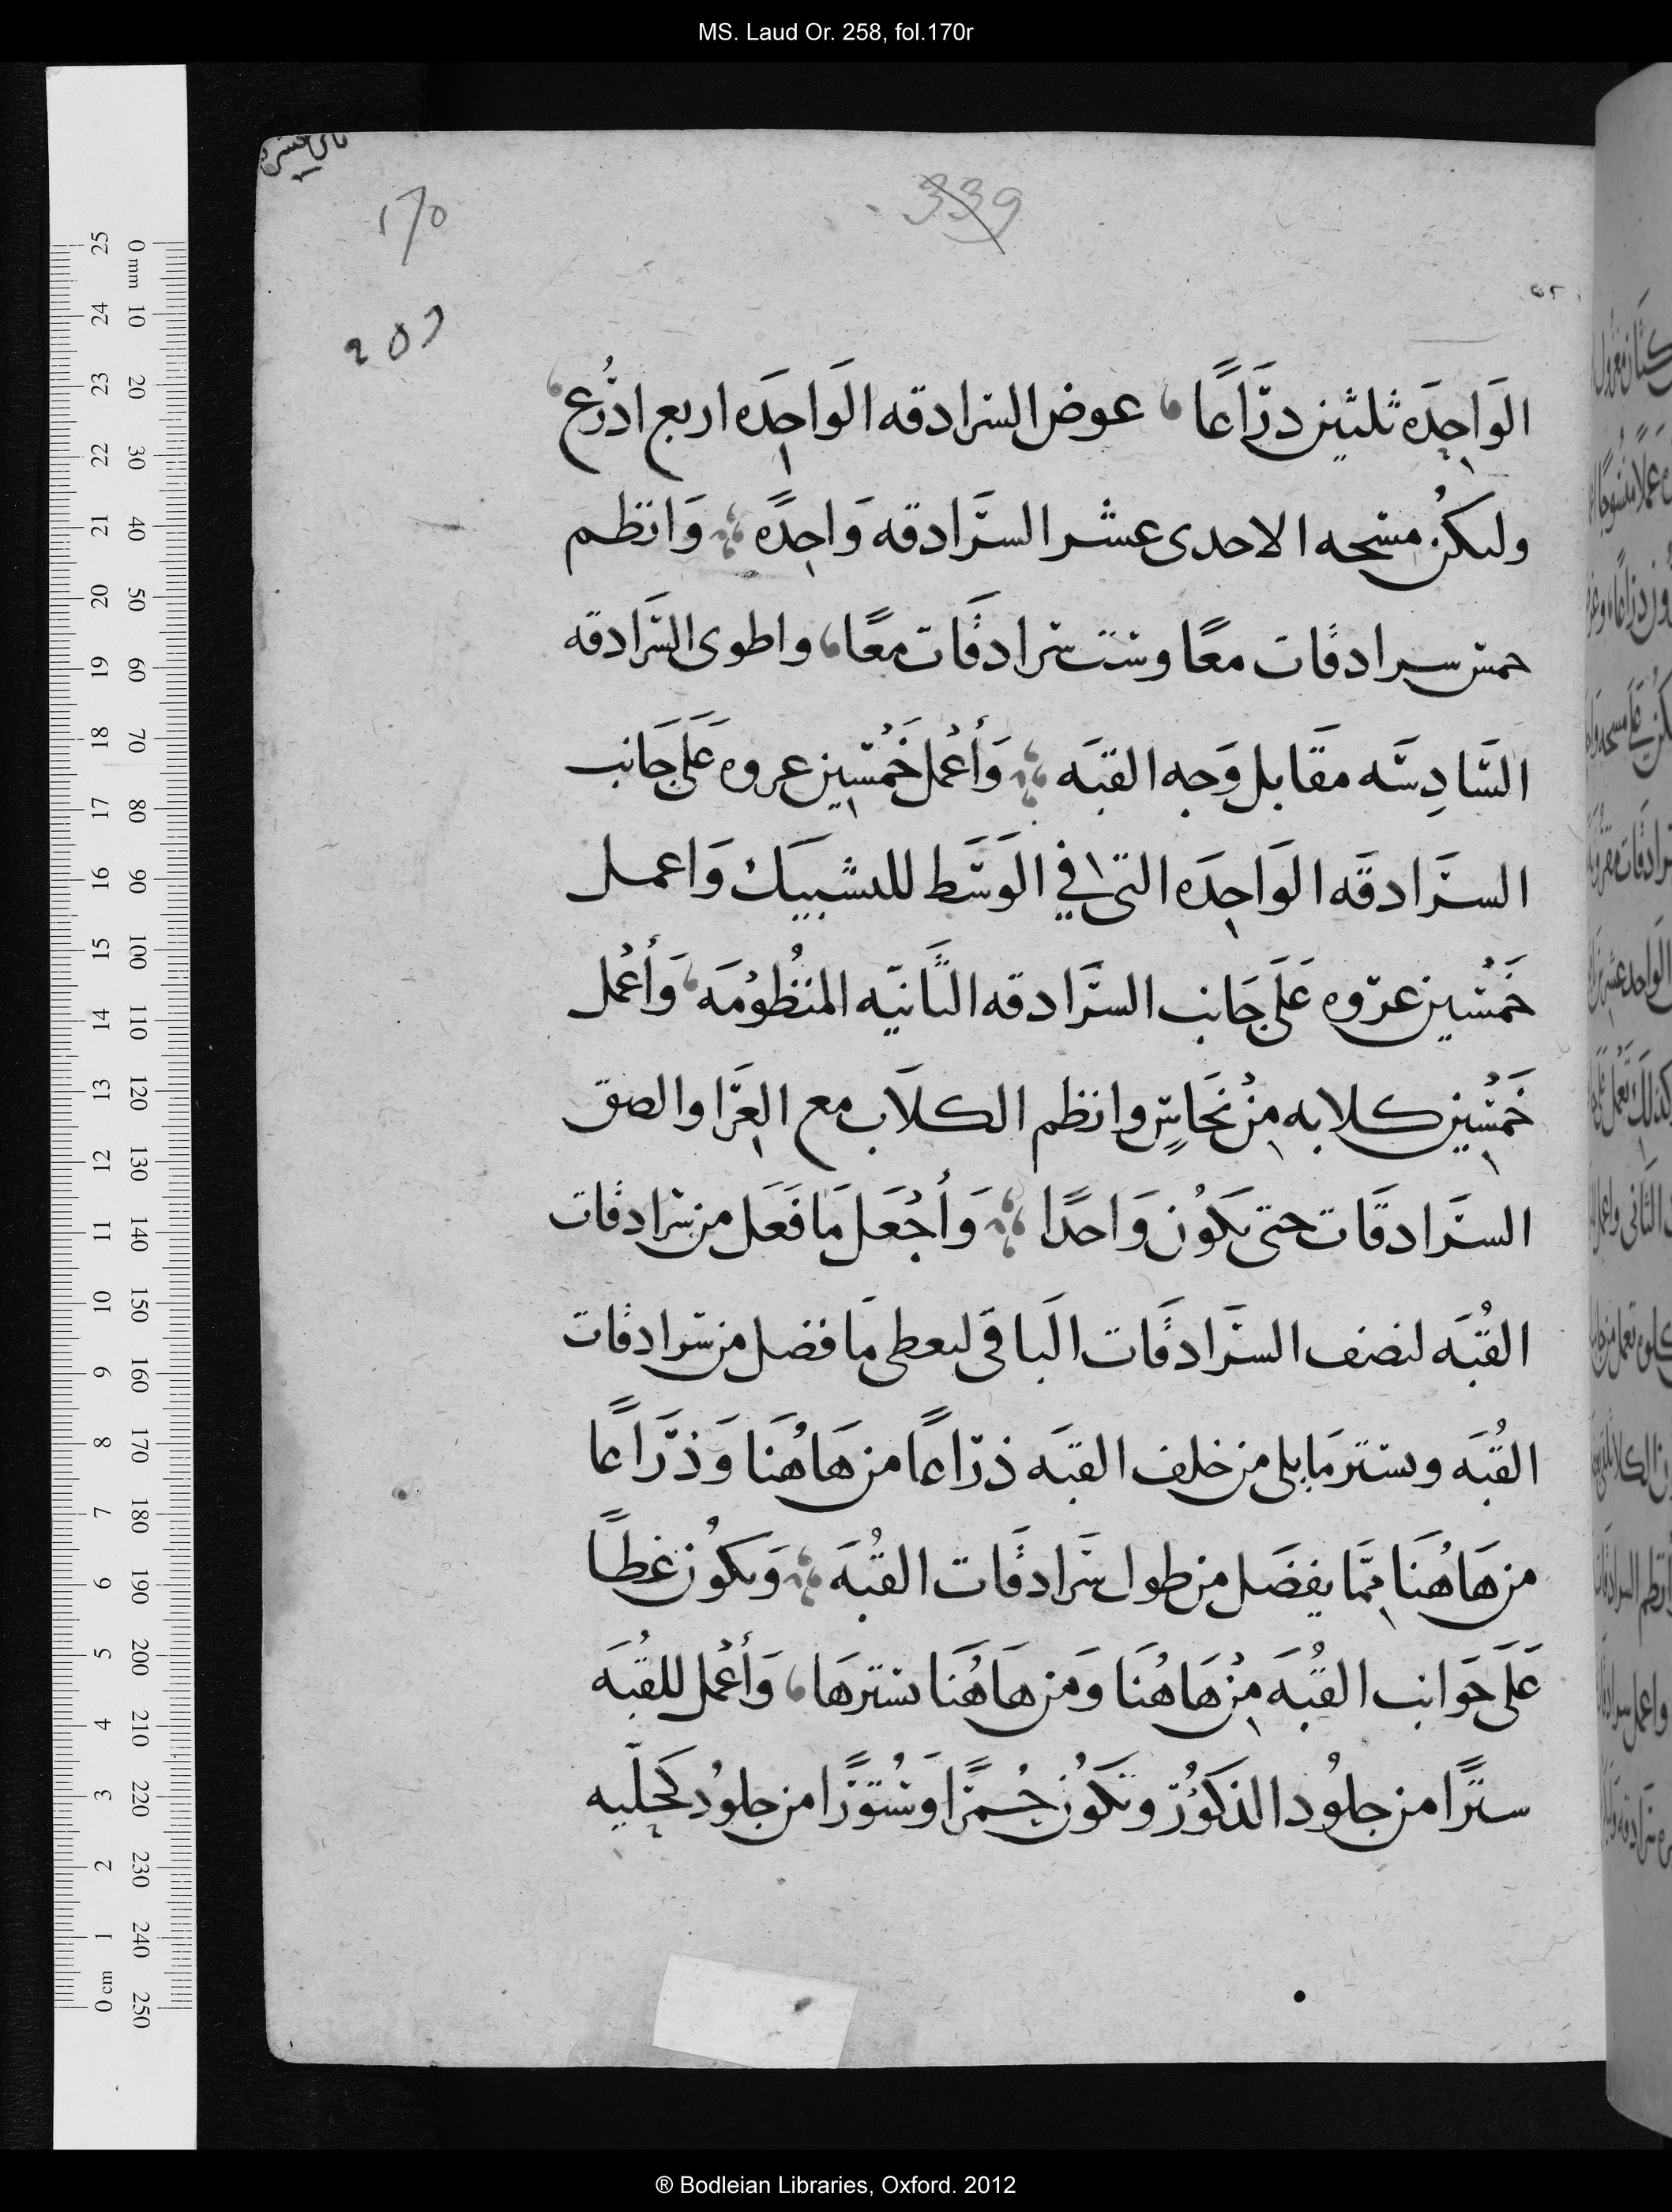 MS. Laud Or. 258, fol.170r
339
170
الوَاحِدَه ثلثين ذرَاعًا، عوض السرادقه الوَاحِدَه اربع اذرُع،
ولىكُن مسحه الاحدى عشر السرَادقه وَاحِدَه ؞ وَانظم
خمس سرادقَات معًا وست سرادقَات معًا، واطوى السَرادقه
السَادِسَه مقَابل وَجه القبَه ؞ وَأعْمل خَمْسين عروه عَلَى جَانب
السرَادقَه الوَاحِدَه التى في الوَسَط للتشبيَك وَاعمل
خَمْسين عروه عَلَى جَانب السرَادقه الثَانيَه المنظُومَه، وَأعْمل
خَمْسين كلابه مِنْ نحَاسٍ وانظم الكلاَب مع العرَا والصق
السرَادقَات حتى يكَوُن وَاحدًا ؞ وَأجْعَل مَا فَعَل من سرادقَات
القُبَه لنصف السرَادقَات الَباقى ليعطى مَا فضل من سرادقَات
القُبَه ويستر مَا يلى من خلف القبَه ذرَاعًا من هَاهُنَا وَذرَاعًا
من هَاهُنَا ممَّا يفضَل من طول سَرادقَات القُبَه ؞ وَيكوُن غطًا
عَلَى جَوانب القُبَه مِنْ هَاهُنَا وَمن هَاهُنَا يسترهَا، وَأعْمل للقُبَه
سترًا من جلوُد الذكوُر وَتكَوُن حُمرًا وَسُتوُرًا من جلوُد كحليّه
0 mm 10 20 30 40 50 60 70 80 90 100 110 120 130 140 150 160 170 180 190 200 210 220 230 240 250
25 24 23 22 21 20 19 18 17 16 15 14 13 12 11 10 9 8 7 6 5 4 3 2 1 0 cm
® Bodleian Libraries, Oxford. 2012